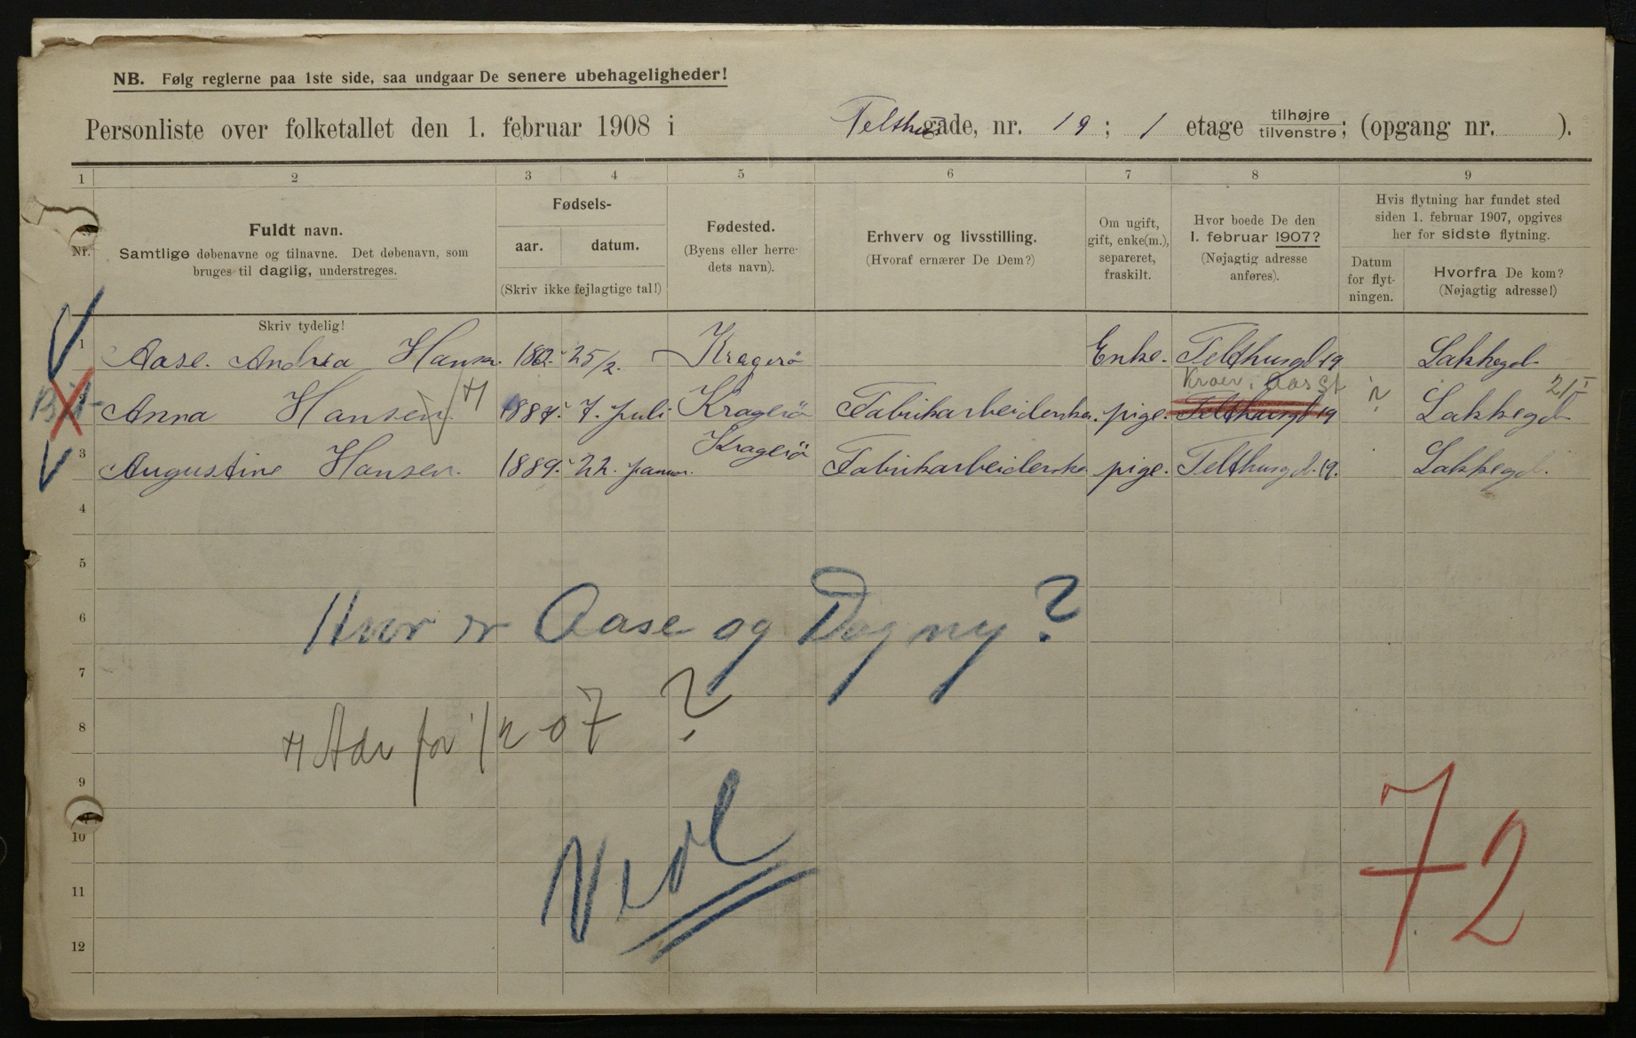 NB. Følg reglerne paa 1ste side, saa undgaar De senere ubehageligheder!
Personliste over folketallet den 1. februar 1908 i Telthusgade, nr. 19; 1 etage tilhøjre tilvenstre; (opgang nr. ).
1 2 3 4 5 6 7 8 9
Nr.
Fuldt navn.
Samtlige døbenavne og tilnavne. Det døbenavn, som
bruges til daglig, understreges.
Skriv tydelig!
Fødsels-
aar. datum.
(Skriv ikke fejlagtige tal!)
Fødested.
(Byens eller herre-
dets navn).
Erhverv og livsstilling.
(Hvoraf ernærer De Dem?)
Om ugift,
gift, enke(m.),
separeret,
fraskilt.
Hvor boede De den
1. februar 1907?
(Nøjagtig adresse
anføres).
Hvis flytning har fundet sted
siden 1. februar 1907, opgives
her for sidste flytning.
Datum
for flyt-
ningen.
Hvorfra De kom?
(Nøjagtig adresse!)
1 Aase. Andrea Hansen. 25/2. Kragerö Enke. Telthusgd 19 Lakkegd
2 Anna Hansen 1887. 7. Juli Kragerö Fabrikarbeiderske. pige. Telthusgd 19 ? Lakkegd
3 Augustine Hansen. 1889. 22. Januar. Kragerö Fabrikarbeiderske pige. Telthusgd. 19. Lakkegd.
4
5
6 Hvor er Aase og Dagny?
7
8 Adr for 1/2 07 ?
9
10
11
12
72